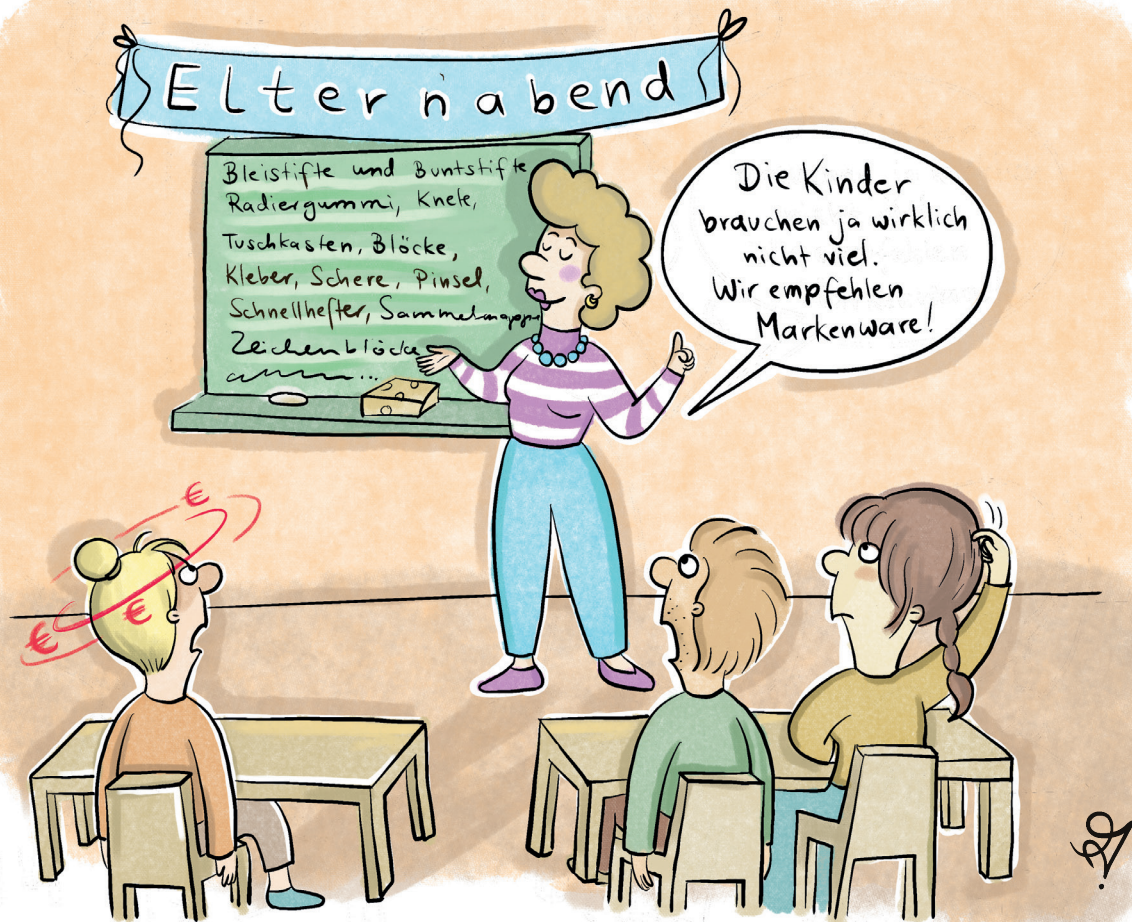 Elternabend
Bleistifte und Buntstifte
Radiergummi, Knete,
Tuschkasten, Blöcke,
Kleber, Schere, Pinsel,
Schnellhefter, Sammelmappe
Zeichenblöcke
...
Die Kinder
brauchen ja wirklich
nicht viel.
Wir empfehlen
Markenware!
€
€
€